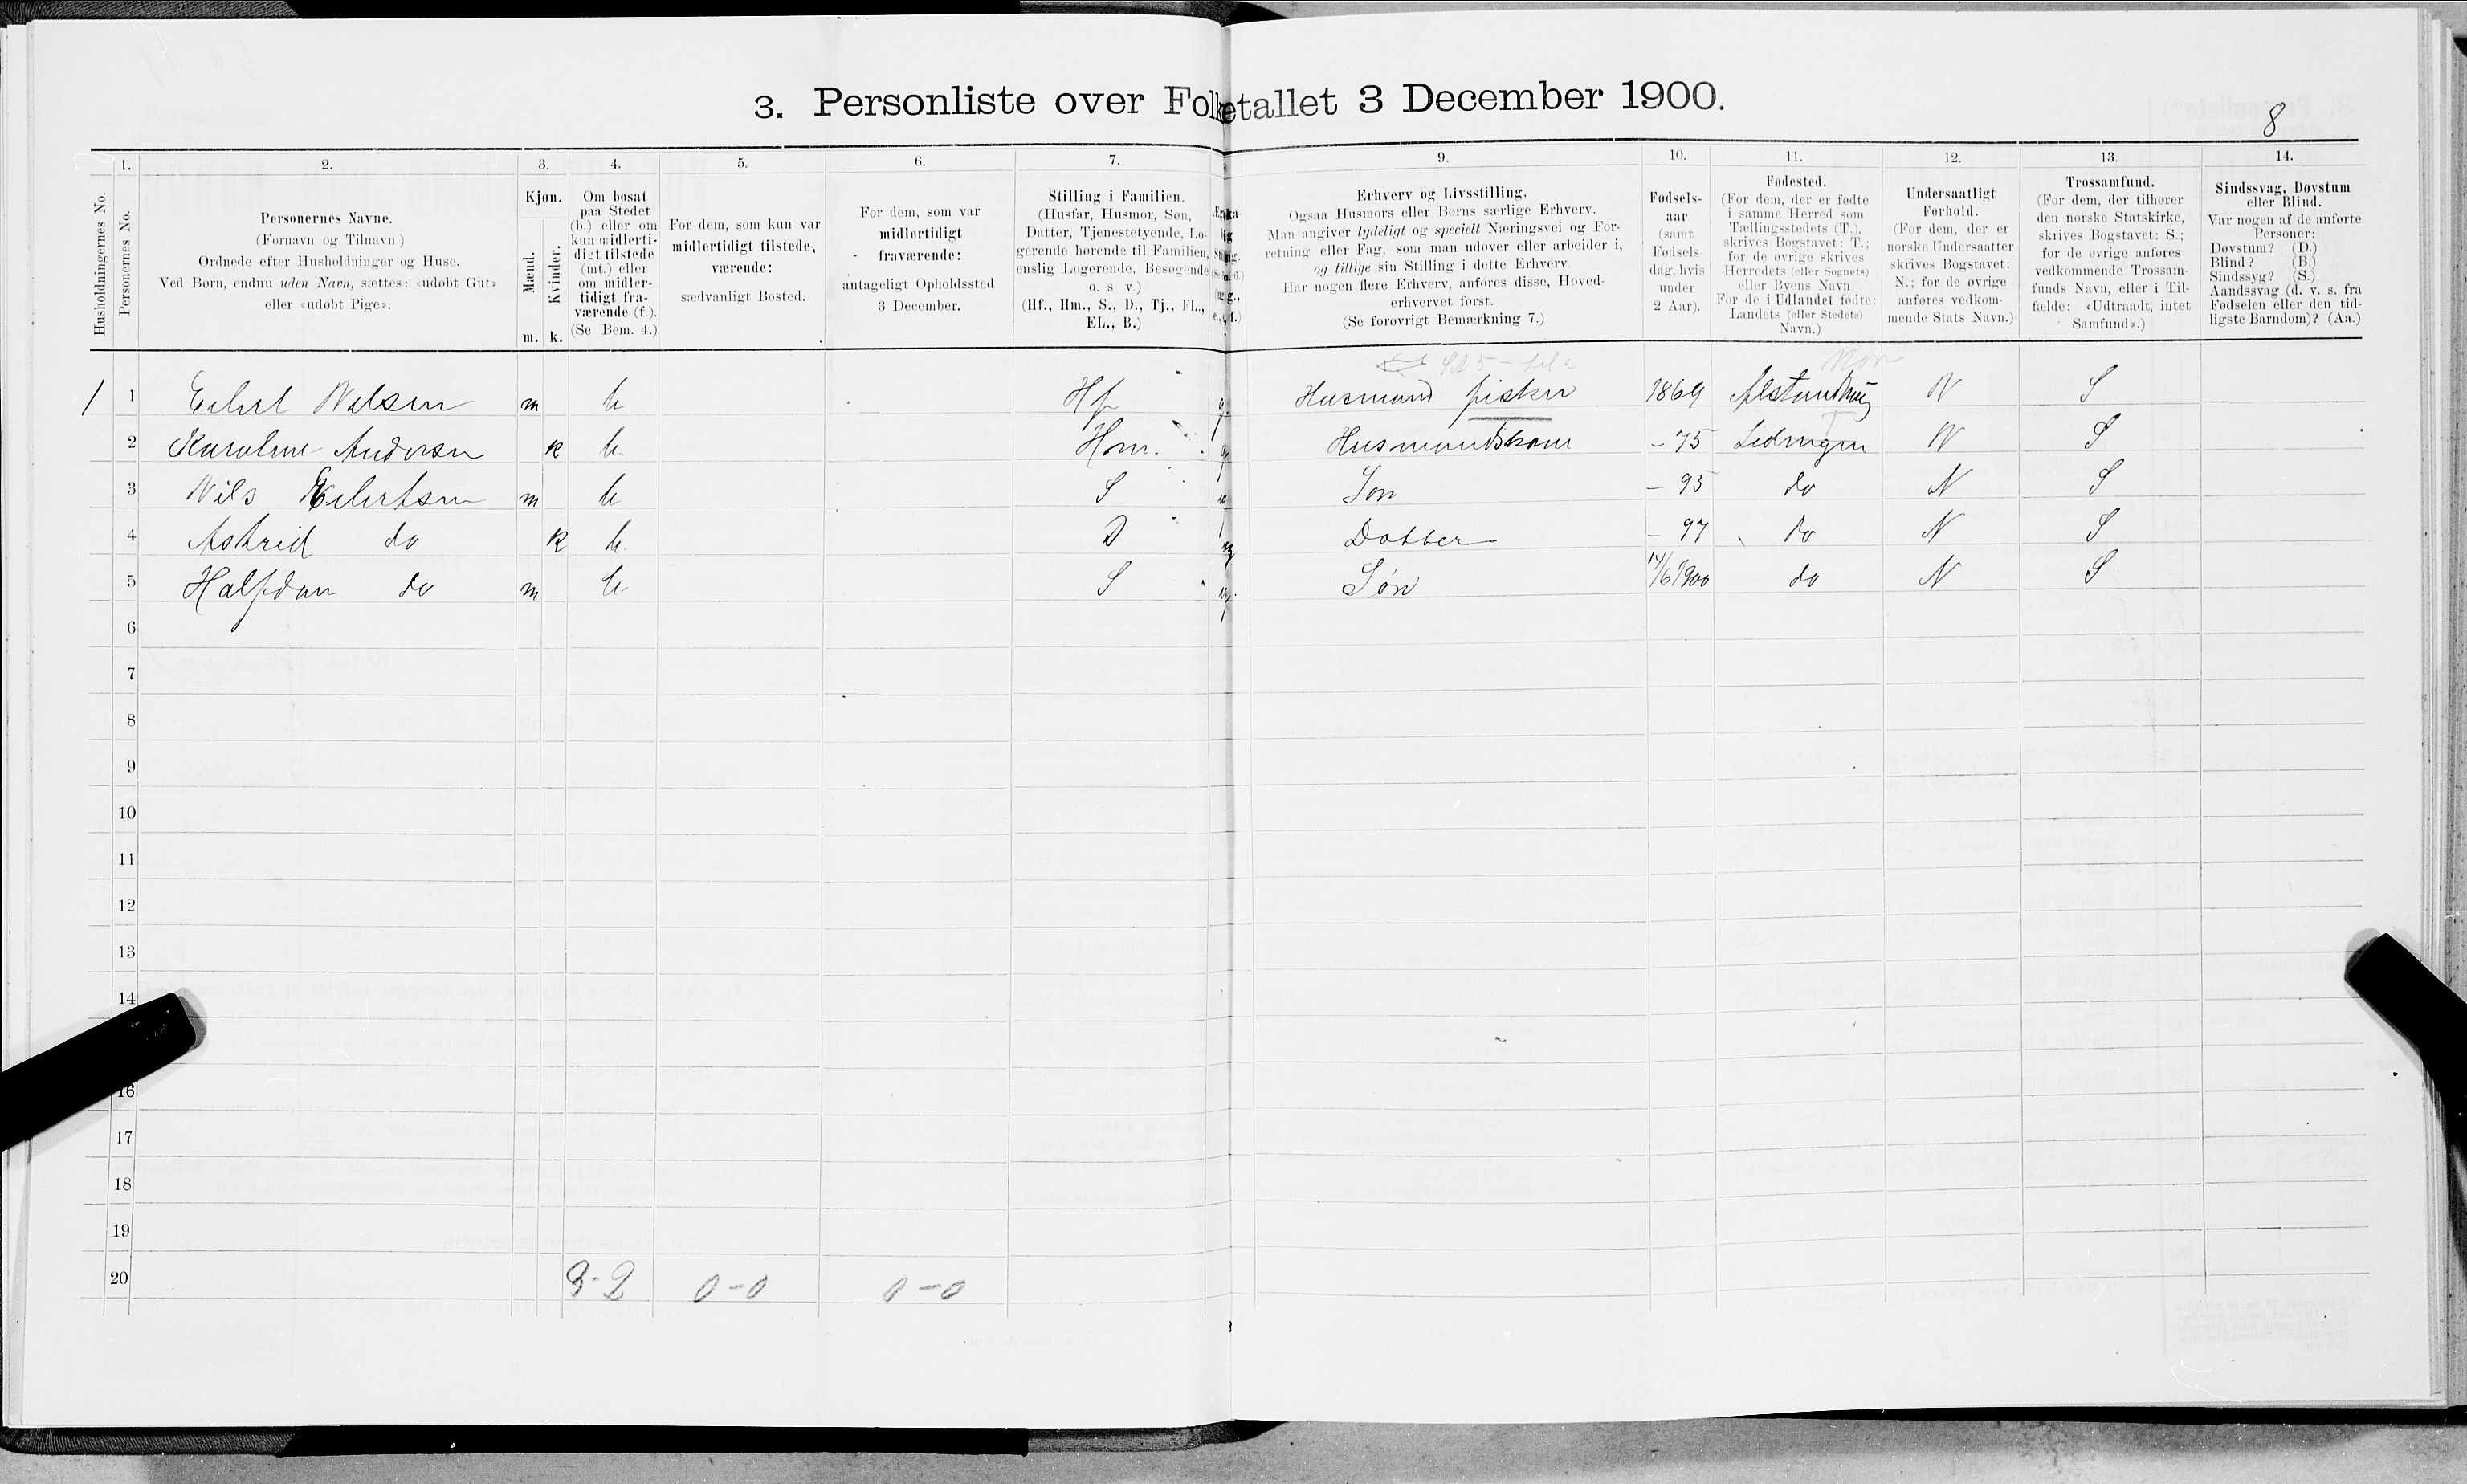 3. Personliste over Folketallet 3 December 1900.
8
1. 2. 3. 4. 5. 6. 7. 9. 10. 11. 12. 13. 14.
Husholdningernes No.
Personernes No.
Personernes Navne.
(Fornavn og Tilnavn)
Ordnede efter Husholdninger og Huse.
Ved Børn, endnu uden Navn, sættes: «udøbt Gut»
eller «udøbt Pige».
Kjøn.
Mænd.
Kvinder.
m. k.
Om bosat
paa Stedet
(b.) eller om
kun midlerti-
digt tilstede
(mt.) eller
om midler-
tidigt fra-
værende (f.).
(Se Bem. 4.)
For dem, som kun var
midlertidigt tilstede-
værende:
sædvanligt Bosted.
For dem, som var
midlertidigt
fraværende:
antageligt Opholdssted
3 December.
Stilling i Familien.
(Husfar, Husmor, Søn,
Datter, Tjenestetyende, Lo-
gerende hørende til Familien,
enslig Logerende, Besøgende
o. s. v.)
(Hf., Hm., S., D., Tj., FL.,
EL., B.)
Erhverv og Livsstilling.
Ogsaa Husmors eller Børns særlige Erhverv.
Man angiver tydeligt og specielt Næringsvei og For-
retning eller Fag, som man udøver eller arbeider i,
og tillige sin Stilling i dette Erhverv.
Har nogen flere Erhverv, anføres disse, Hoved-
erhvervet først.
(Se forøvrigt Bemærkning 7.)
Fødsels-
aar
(samt
Fødsels-
dag, hvis
under
2 Aar).
Fødested.
(For dem, der er fødte
i samme Herred som
Tællingsstedets (T.),
skrives Bogstavet: T.;
for de øvrige skrives
Herredets (eller Sognets)
eller Byens Navn
For de i Udlandet fødte:
Landets (eller Stedets)
Navn.)
Undersaatligt
Forhold.
(For dem, der er
norske Undersaatter
skrives Bogstavet:
N.; for de øvrige
anføres vedkom-
mende Stats Navn.)
Trossamfund.
(For dem, der tilhører
den norske Statskirke,
skrives Bogstavet: S.;
for de øvrige anføres
vedkommende Trossam-
funds Navn, eller i Til-
fælde: «Udtraadt, intet
Samfund».)
Sindssvag, Døvstum
eller Blind.
Var nogen af de anførte
Personer:
Døvstum? (D.)
Blind? (B.)
Sindssyg? (S.)
Aandssvag (d. v. s. fra
Fødselen eller den tid-
ligste Barndom)? (Aa.)
1 1 Eilert Nilsen m b Hf g. Husmand fisker 1869 N S
2 Karoline Andersen k b Hm. g Husmandskone - 75 Lødingen N S
3 Nils Eilertsen m b S Søn - 95 do N S
4 Astrid do k b D Datter - 97 do N S
5 Halfdan do m b S Søn 14/6 1900 do N S
6
7
8
9
10
11
12
13
14
16
17
18
19
20 3-2 0-0 0-0